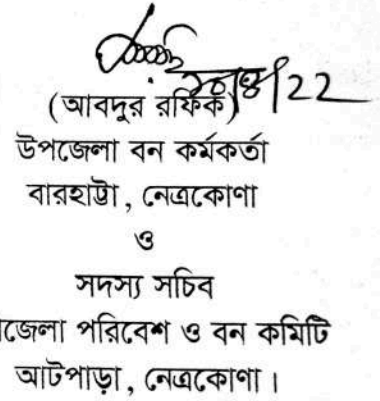 (আবদুর রফিক)
উপজেলা বন কর্মকর্তা
বারহাট্টা, নেত্রকোণা
ও
সদস্য সচিব
জেলা পরিবেশ ও বন কমিটি
আটপাড়া, নেত্রকোণা।